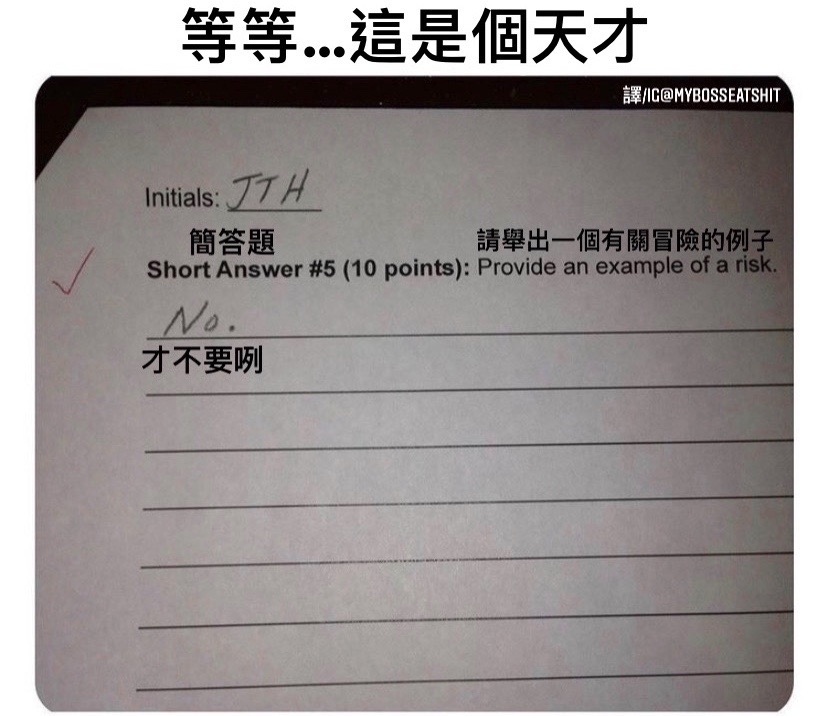 等等...這是個天才
譯/IG@MYBOSSEATSHIT
Initials: JTH
簡答題 請舉出一個有關冒險的例子
Short Answer #5 (10 points): Provide an example of a risk.
No.
才不要咧